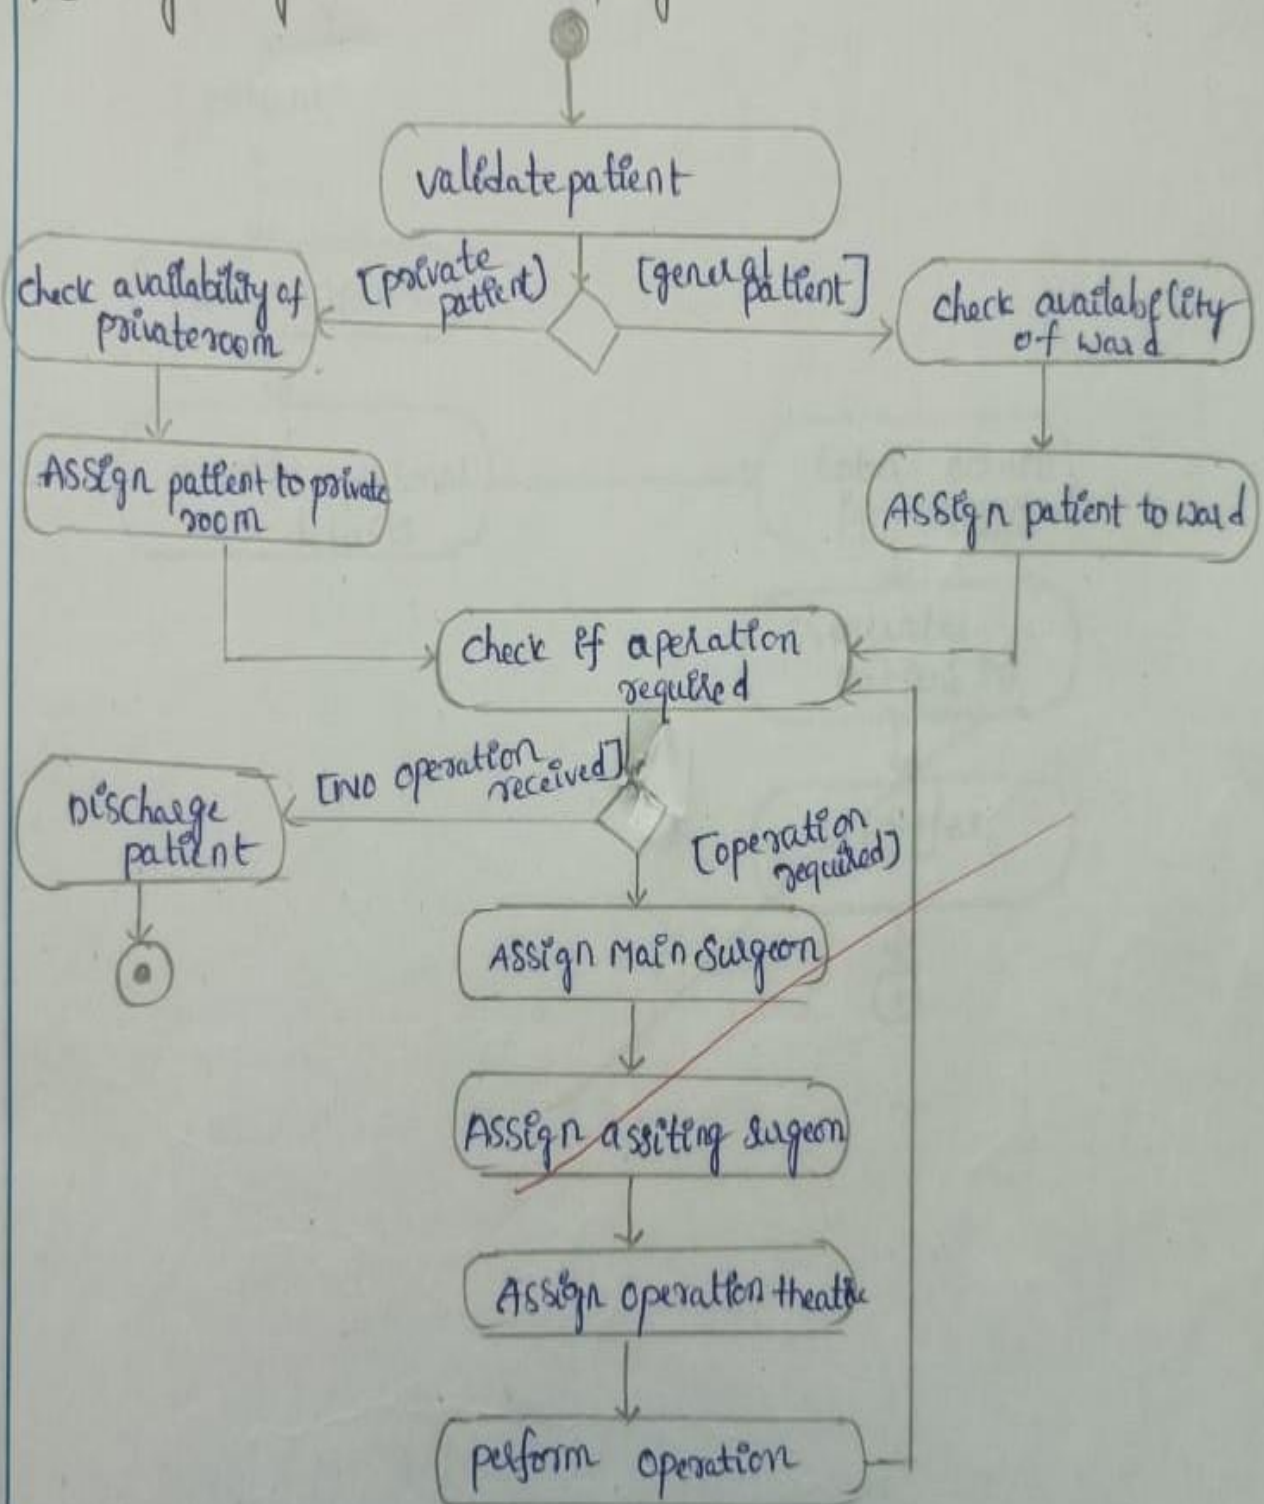 validate patient
[private
patient]
[general
patient]
check availability of
private room
check availability
of ward
Assign patient to private
room
Assign patient to ward
check if aperation
required
[No operation
received]
Discharge
patient
[operation
required]
Assign Main Surgeon
Assign assiting sugeon
Assign operation theatre
perform operation